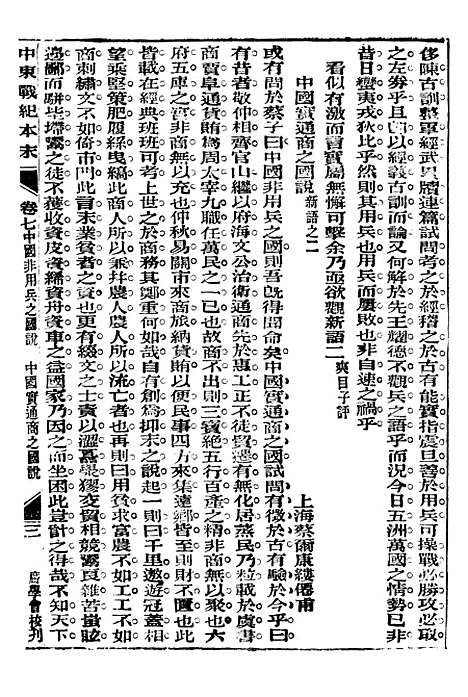 侈陳古訓整軍經武累牘連篇試問考之於經稽之於古有能實指震旦善於用兵可操戰必勝攻必取
之左劵乎且卽以經義古訓而論又何解於先王耀德不觀兵之語乎而況今日五洲萬國之情勢已非
昔日蠻夷戎狄比乎然則其用兵也用兵而屢敗也非自速之禍乎
看似有激而言實屬無懈可擊余乃亟欲觀新語二 爽目子評
中國實通商之國說 新語之二
上海蔡爾康縷僊甫
或有問於蔡子曰中國非用兵之國則吾旣得聞命矣中國實通商之國試問有徵於古有驗於今乎曰
有昔者敬仲相齊官山繼以府海文公治衛通商先於惠工正不徒貿遷有無化居蒸民乃粒載於虞書
商賈阜通貨賄爲周太宰九職任萬民之一已也故商不出則三寶絕五行百產之精非商無以聚也六
府五庫之富非商無以充也仲秋易關市來商旅納貨賄以便民事四方來集遠鄉皆至則財不匱也此
皆載在經典班班可考上世之於商務其鄭重何如哉自有創爲抑末之說起一則曰千里遨遊冠蓋相
望乘堅策肥履絲曳縞此商人所以兼幷農人農人所以流亡者也再則曰用貧求富農不如工工不如
商刺繡文不如倚市門此言末業貧者之資也更有綴文之士責以澀譶舉㺒交貿相競霢良雜苦蚩眩
邊鄙而駢坒壒霢之徒不獲收資皮資絺資舟資車之益國家乃因之而坐困此豈計之得哉不知天下
中東戰紀本末 卷七 中國非用兵之國說 中國實通商之國說 三 廣學會校刊